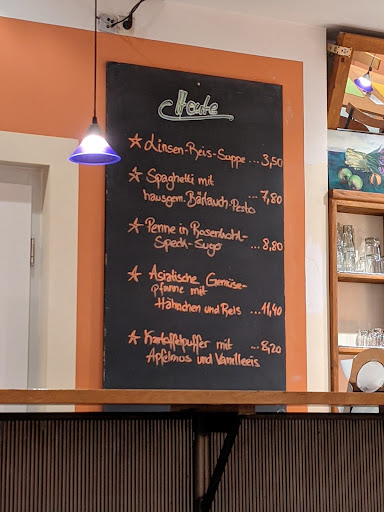 Heute
Linsen-Reis-Suppe ... 3,50
Spaghetti mit
hausgem. Bärlauch-Pesto ... 7,80
Penne in Rosenkohl-
Speck-Sugo ... 8,80
Asiatische Gemüse-
pfanne mit
Hähnchen und Reis ... 11,40
Kartoffelpuffer mit ... 8,20
Apfelmos und Vanilleeis